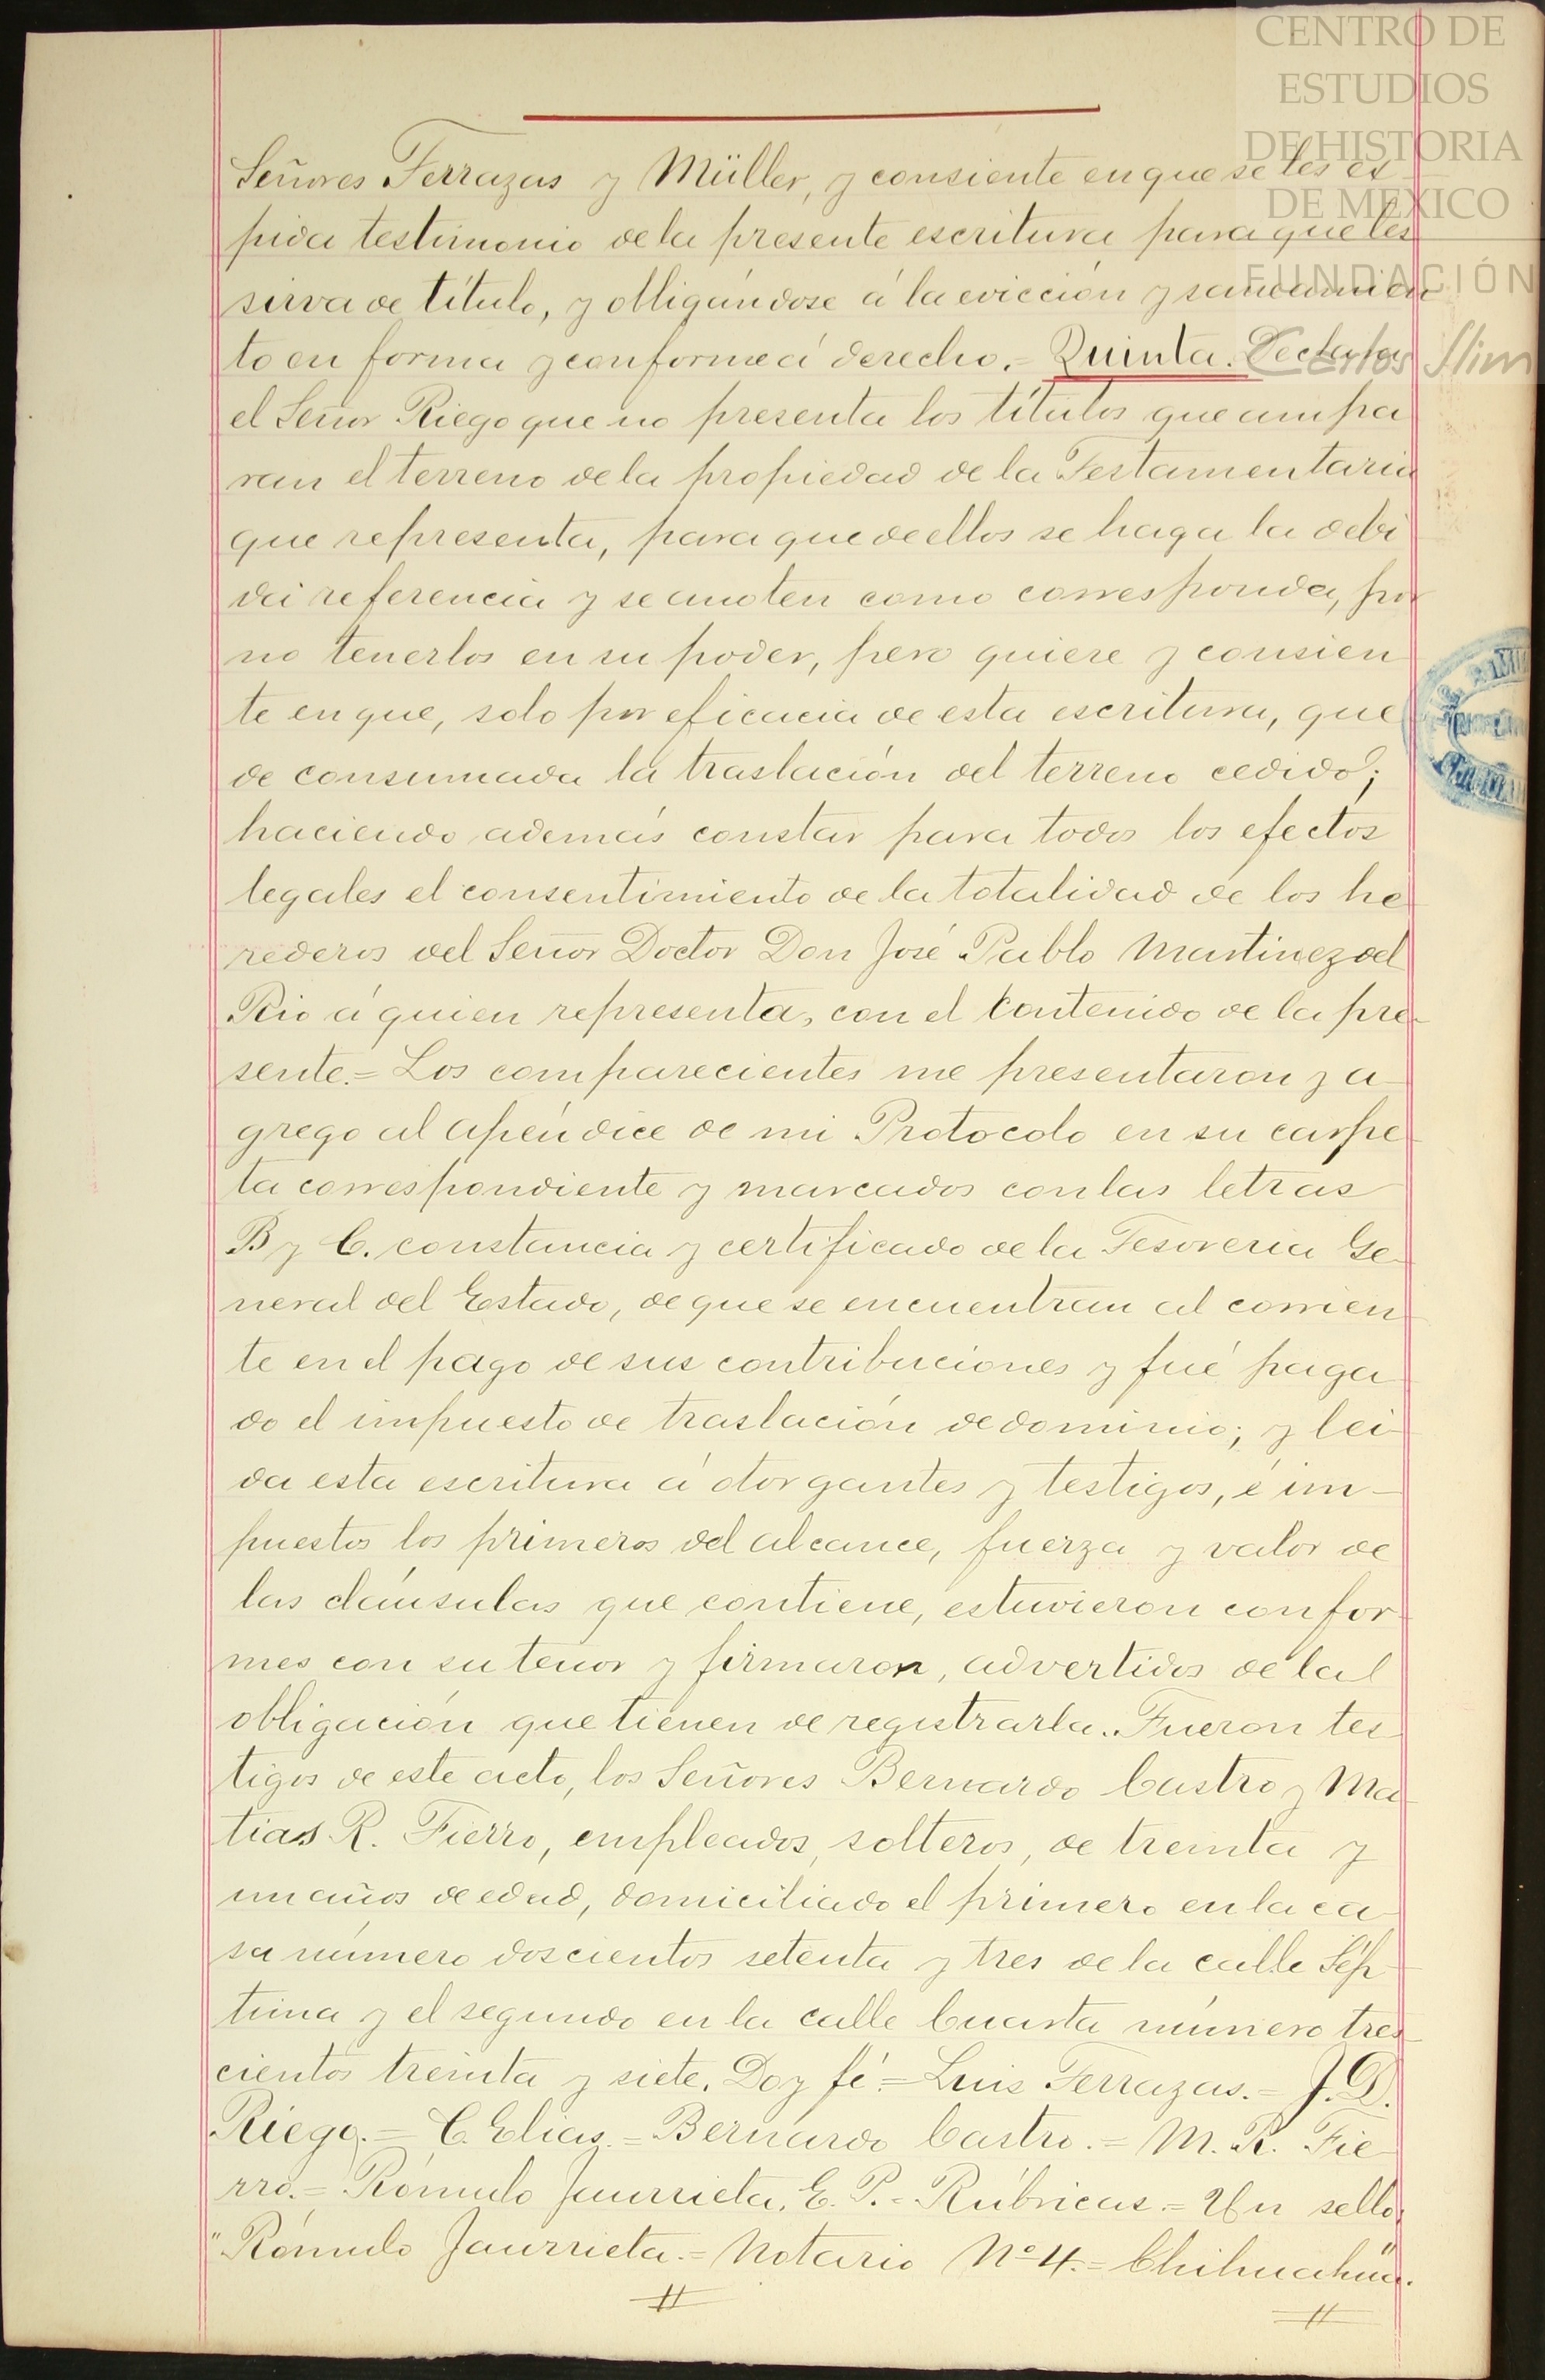 CENTRO DE
ESTUDIOS
DE HISTORIA
DE MÉXICO
FUNDACIÓN
Carlos Slim
Señores Terrazas y Müller, y consiente en que se les ex
pida testimonio de la presente escritura para que les
sirva de título, y obligándose á la evicción y saneamien
to en forma y conforme á derecho.= Quinta. Declara
el Señor Riego que no presenta los títulos que ampa
ran el terreno de la propiedad de la Testamentaria
que representa, para que de ellos se haga la debi
da referencia y se anoten como corresponda, por
no tenerlos en su poder, pero quiere y consien
te en que, solo por eficacia de esta escritura, que
de consumada la traslación del terreno cedido;
haciendo además constar para todos los efectos
legales el consentimiento de la totalidad de los he
rederos del Señor Doctor Don José Pablo Martinez del
Rio á quien representa, con el contenido de la pre-
sente.= Los comparecientes me presentaron y a-
grego al apéndice de mi Protocolo en su carpe
ta correspondiente y marcados con las letras
B y C. constancia y certificado de la Tesoreria Ge-
neral del Estado, de que se encuentran al corrien
te en el pago de sus contribuciones y fué paga
do el impuesto de traslación de dominio; y lei-
da esta escritura á otorgantes y testigos, é im-
puestos los primeros del alcance, fuerza y valor de
las cláusulas que contiene, estuvieron confor-
mes con su tenor y firmaron, advertidos de la
obligación que tienen de registrarla. Fueron tes-
tigos de este acto, los Señores Bernardo Castro y Ma-
tias R. Fierro, empleados, solteros, de treinta y
un años de edad, domiciliado el primero en la ca
sa número doscientos setenta y tres de la calle Sép-
tima y el segundo en la calle Cuarta número tres-
cientos treinta y siete. Doy fé.= Luis Terrazas.= J. D.
Riego.= C. Elias.= Bernardo Castro.= M. R. Fie-
rro.= Rómulo Jaurrieta. E. P.= Rúbricas.= Un sello,
"Rómulo Jaurrieta.= Notario Nº 4.= Chihuahua."